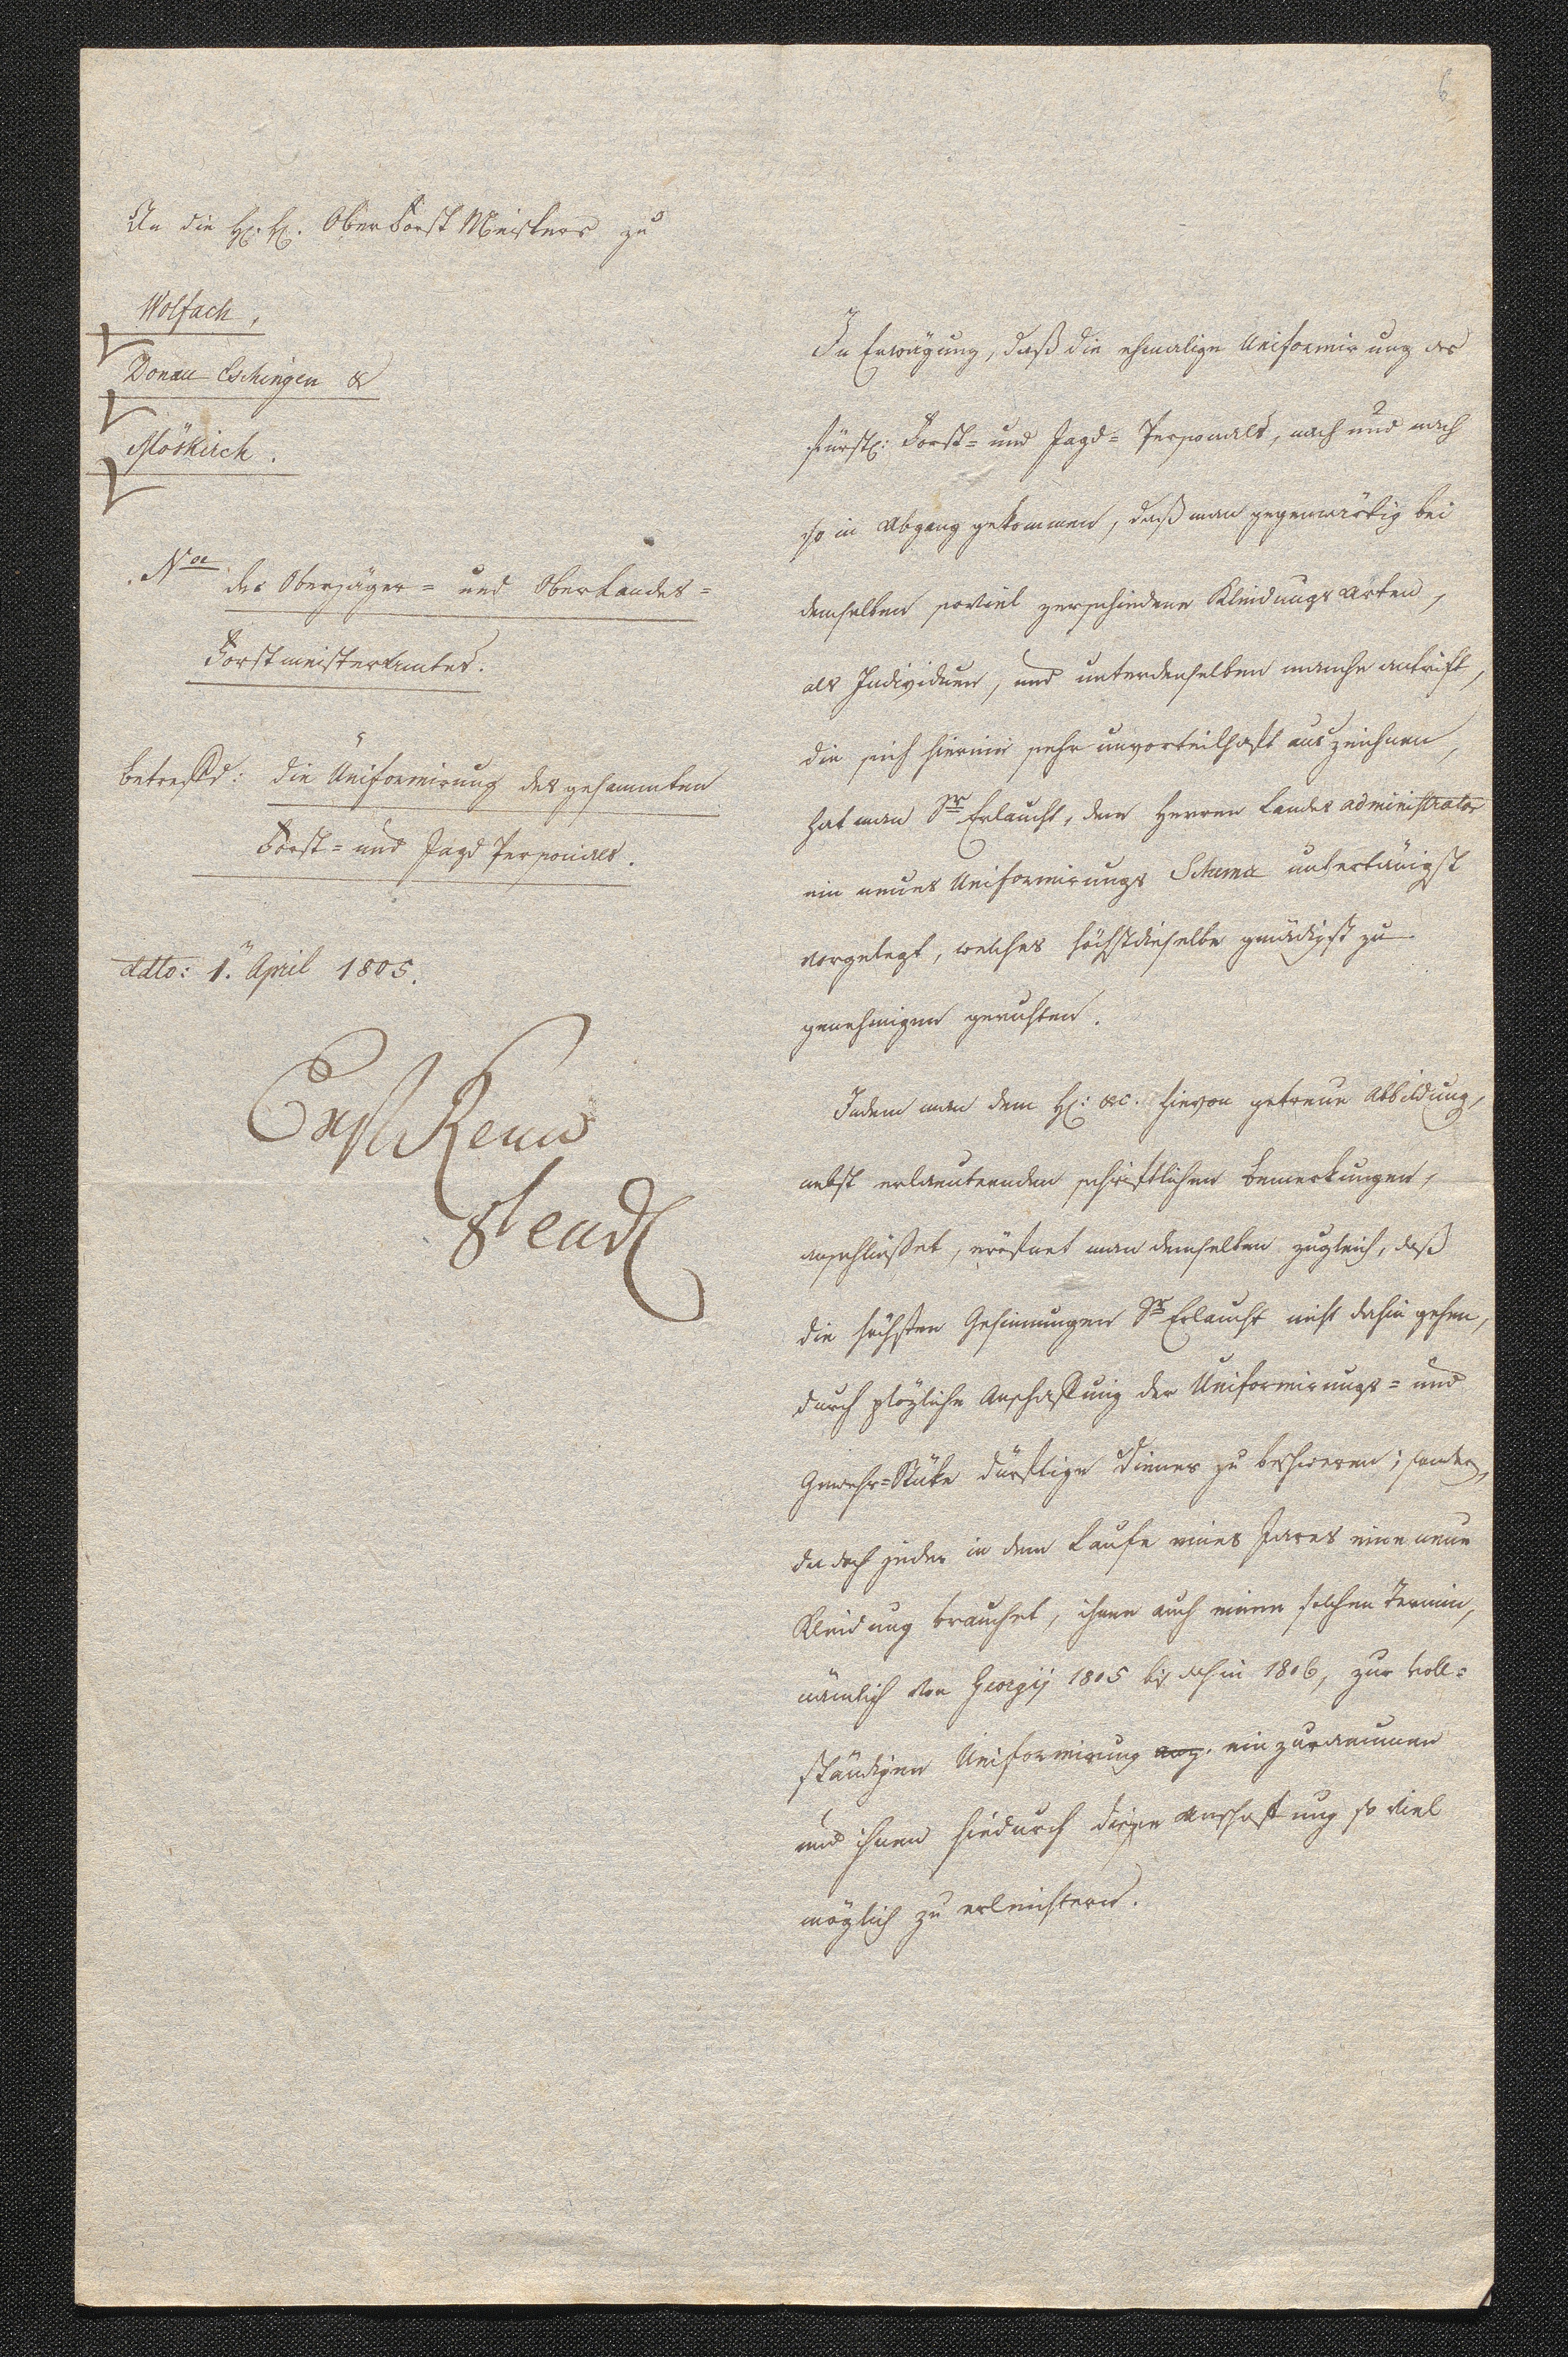 6
An die H. H. OberForstMeisters zu
Wolfach,
Donau Eschingen &
Möskirch.
Na
des Oberjäger= und OberLandes=
Forstmeisteramtes.
Betreffd: die Uniformirung des gesammten
Forst= und Jagd Personales.
ddto: 1.ᵗ April 1805.
In Erwägung, daß die ehmalige Uniformirung des
fürstl: Forst= und Jagd= Personales, nach und nach
so in Abgang gekommen, daß man gegenwärtig bei
demselben soviel verschiedene Kleidungs Arten,
als Individuen, und unterdenselben manche antrift,
die sich hierin sehr unvorteilhaft auszeichnen,
hat man Sr Erlaucht, dem Herren Landes administrator
ein neues Uniformirungs Schema untertänigst
vorgelegt, welches höchstdieselbe gnädigst zu
genehmigen geruhten.
Indem man dem H: &c. hievon getreue Abbildung,
nebst erlaeuternden schriftlichen Bemerkungen,
anschlüßet, eröfnet man demselben zugleich, daß
die höchsten Gesinnungen Sr Erlaucht nicht dahin gehen,
durch plözliche Anschaffung der Uniformirungs= und
Gewehr=Stüke dürftige Diener zu beschweren; sondern,
da doch jeder in dem Laufe eines Jares eine neue
Kleidung brauchet, ihnen auch einen solchen Termin,
nämlich von Georgij 1805 bis dahin 1806, zur voll=
ständigen Uniformirung einzuraeumen
und ihnen hiedurch diese Anschaffung so viel
möglich zu erleichtern.